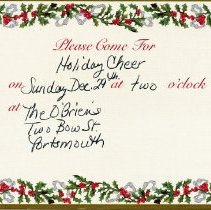 Please Come For
Holiday Cheer
on Sunday Dec. 29th at two o'clock
at The O'Briens
Two Bow St.
Portsmouth